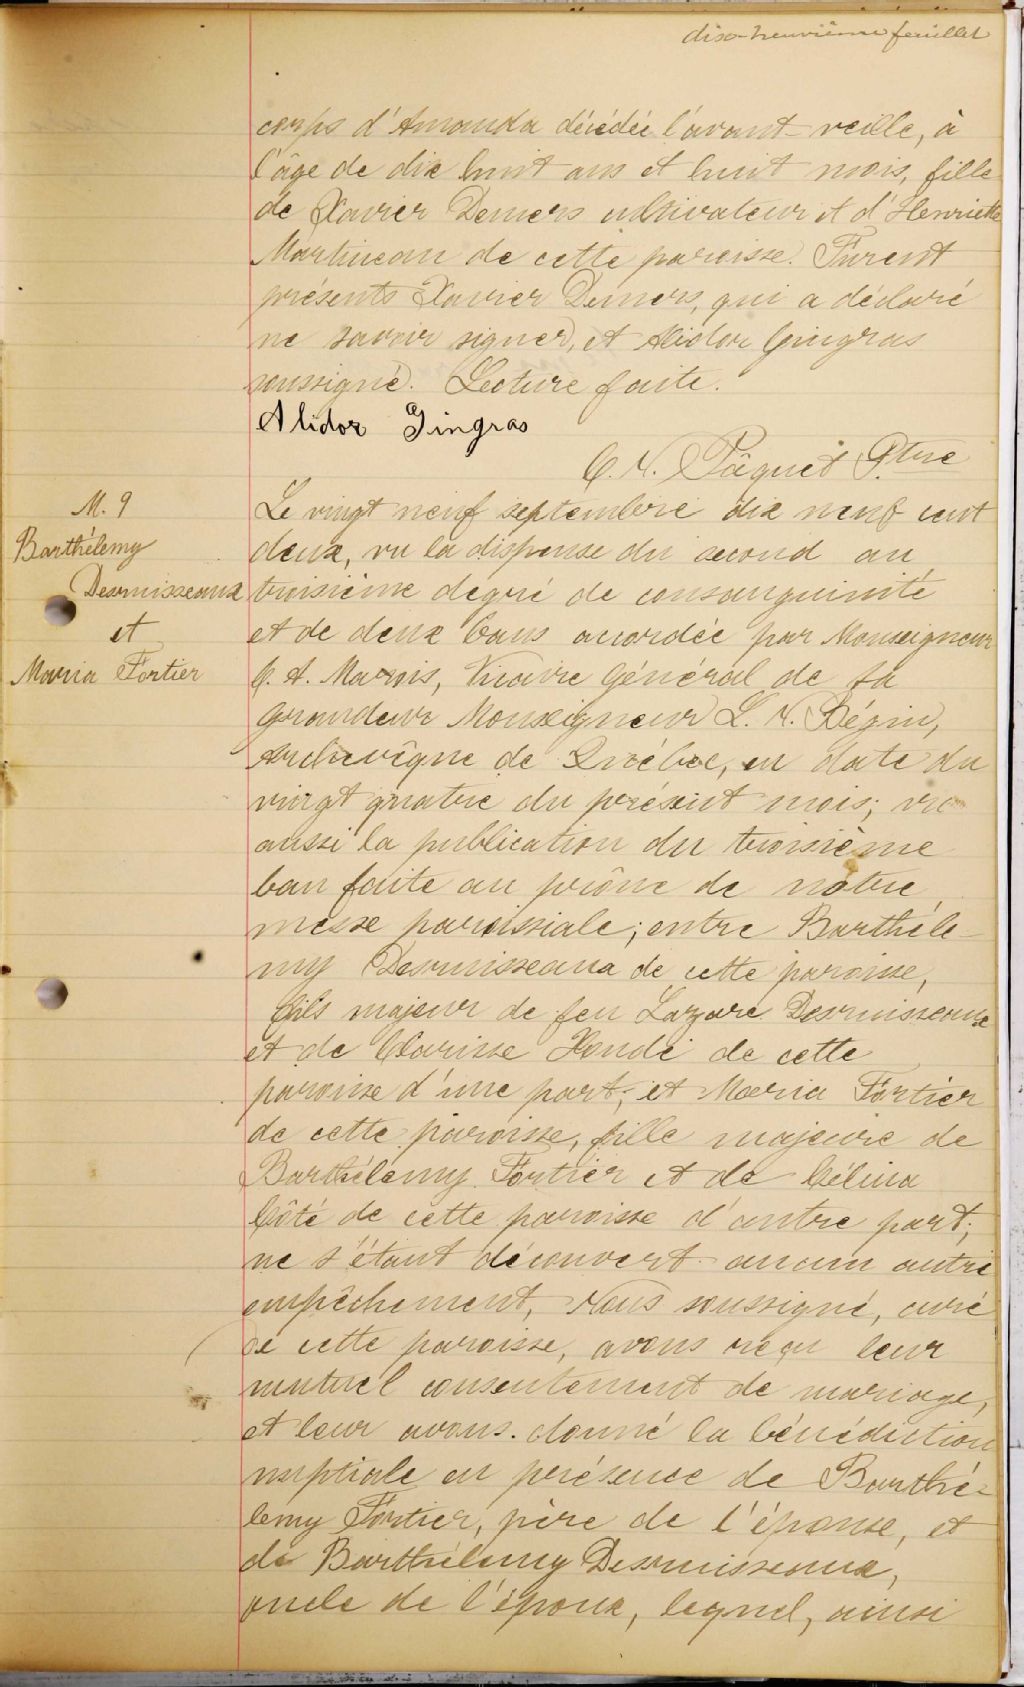 dix-neuvième feuillet
corps d'Amanda décédée l'avant-veille, à
l'âge de dix huit ans et huit mois, fille
de Xavier Demers cultivateur et d'Henriette
Martineau de cette paroisse. Furent
présents Xavier Demers, qui a déclaré
ne savoir signer, et Alidor Gingras
soussigné. Lecture faite.
Alidor Gingras
C. N. Pâquet Ptre
M. 9
Barthélemy
Desruisseaux
et
Maria Fortier
Le vingt neuf septembre dix neuf cent
deux, vu la dispense du second au
troisième degré de consanguinité
et de deux bans accordée par Monseigneur
C. A. Marois, Vicaire Général de Sa
Grandeur Monseigneur L. N. Bégin,
Archevêque de Québec, en date du
vingt quatre du présent mois; vu
aussi la publication du troisième
ban faite au prône de notre
messe paroissiale; entre Barthéle-
my Desruisseaux de cette paroisse,
fils majeur de feu Lazare Desruisseaux
et de Clarisse Houde de cette
paroisse d'une part; et Maria Fortier
de cette paroisse, fille majeure de
Barthélemy Fortier et de Célina
Côté de cette paroisse d'autre part;
ne s'étant découvert aucun autre
empêchement, Nous soussigné, curé
de cette paroisse, avons reçu leur
mutuel consentement de mariage,
et leur avons donné la bénédiction
nuptiale en présence de Barthé-
lemy Fortier, père de l'épouse, et
de Barthélemy Desruisseaux,
oncle de l'époux, lequel, ainsi